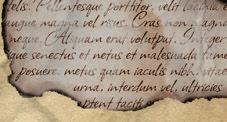 felis. Pellentesque porttitor, velit lacinia
augue magna vel risus. Cras non magna
neque. Aliquam erat volutpat. Integer
que senectus et netus et malesuada fame
posuere, metus quam iaculis nibh, vitae
urna, interdum vel, ultricies
ptent taciti